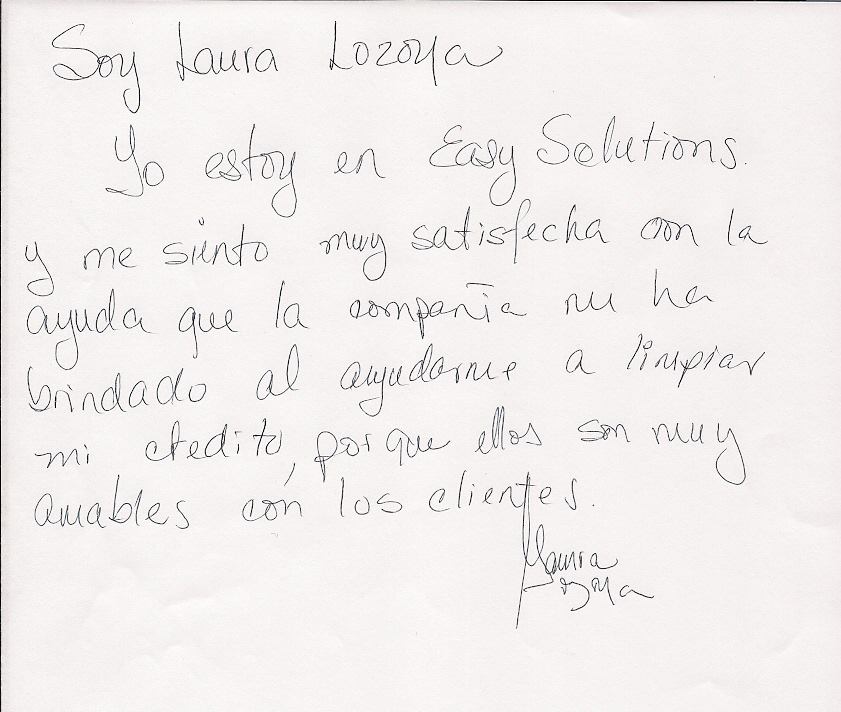 Soy Laura Lozoya
Yo estoy en Easy Solutions.
y me siento muy satisfecha con la
ayuda que la compañia me ha
brindado al ayudarme a limpiar
mi credito, porque ellos son muy
amables con los clientes.
Laura
Lozoya